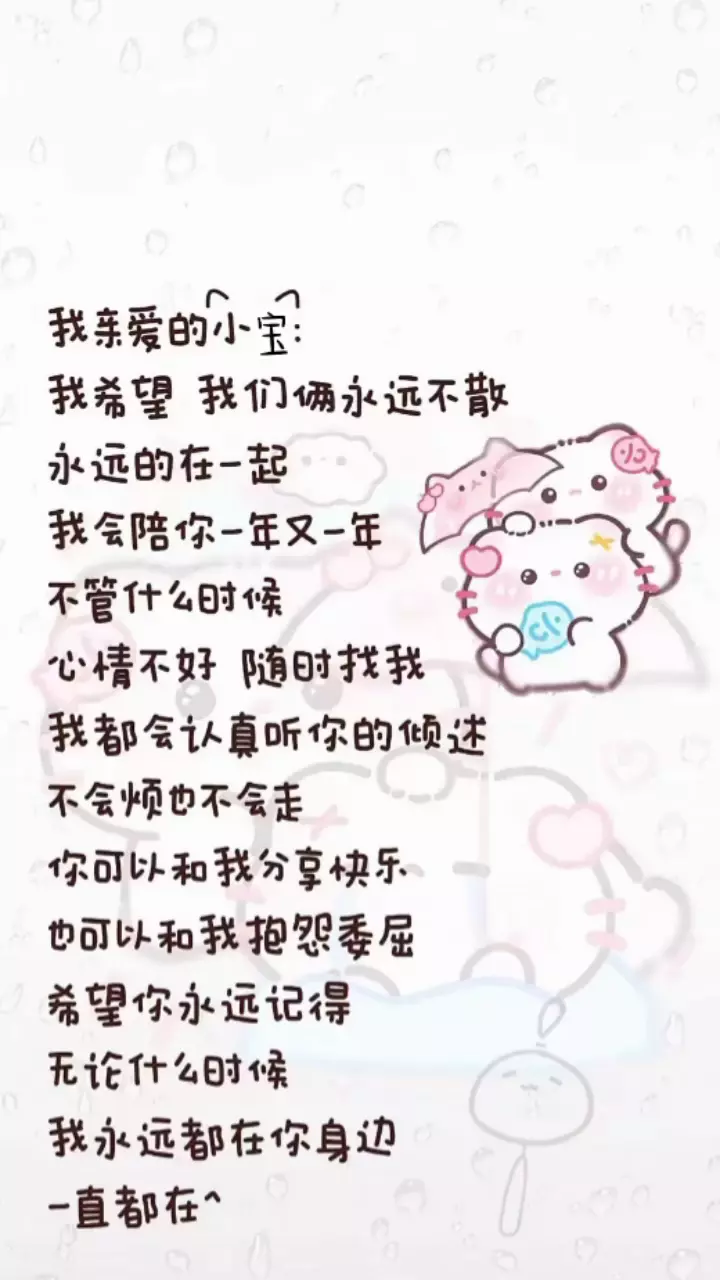 我亲爱的小宝:
我希望 我们俩永远不散
永远的在一起
我会陪你一年又一年
不管什么时候
心情不好 随时找我
我都会认真听你的倾述
不会烦也不会走
你可以和我分享快乐
也可以和我抱怨委屈
希望你永远记得
无论什么时候
我永远都在你身边
一直都在^